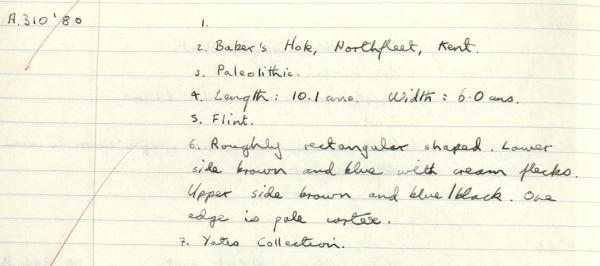 A.310'80
1.
2. Baker's Hole, Northfleet, Kent.
3. Paleolithic.
4. Length: 10.1 cms. Width: 6.0 cms.
5. Flint.
6. Roughly rectangular shaped. Lower
side brown and blue with cream flecks.
Upper side brown and blue/black. One
edge is pale cortex.
7. Yates Collection.